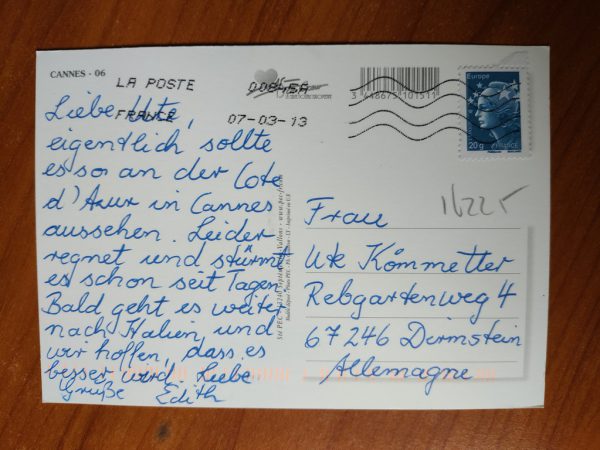 CANNES - 06
LA POSTE
00845A
FRANCE
07-03-13
3 448675 101511
Europe
20g FRANCE
Liebe Ute,
eigentlich sollte
es so an der Cote
d'Azur in Cannes
aussehen. Leider
regnet und stürmt
es schon seit Tagen.
Bald geht es weiter
nach Italien, und
wir hoffen, dass es
besser wird. Liebe
Grüße Edith
16225
Frau
Ute Kömmetter
Rebgartenweg 4
67246 Dirmstein
Allemagne